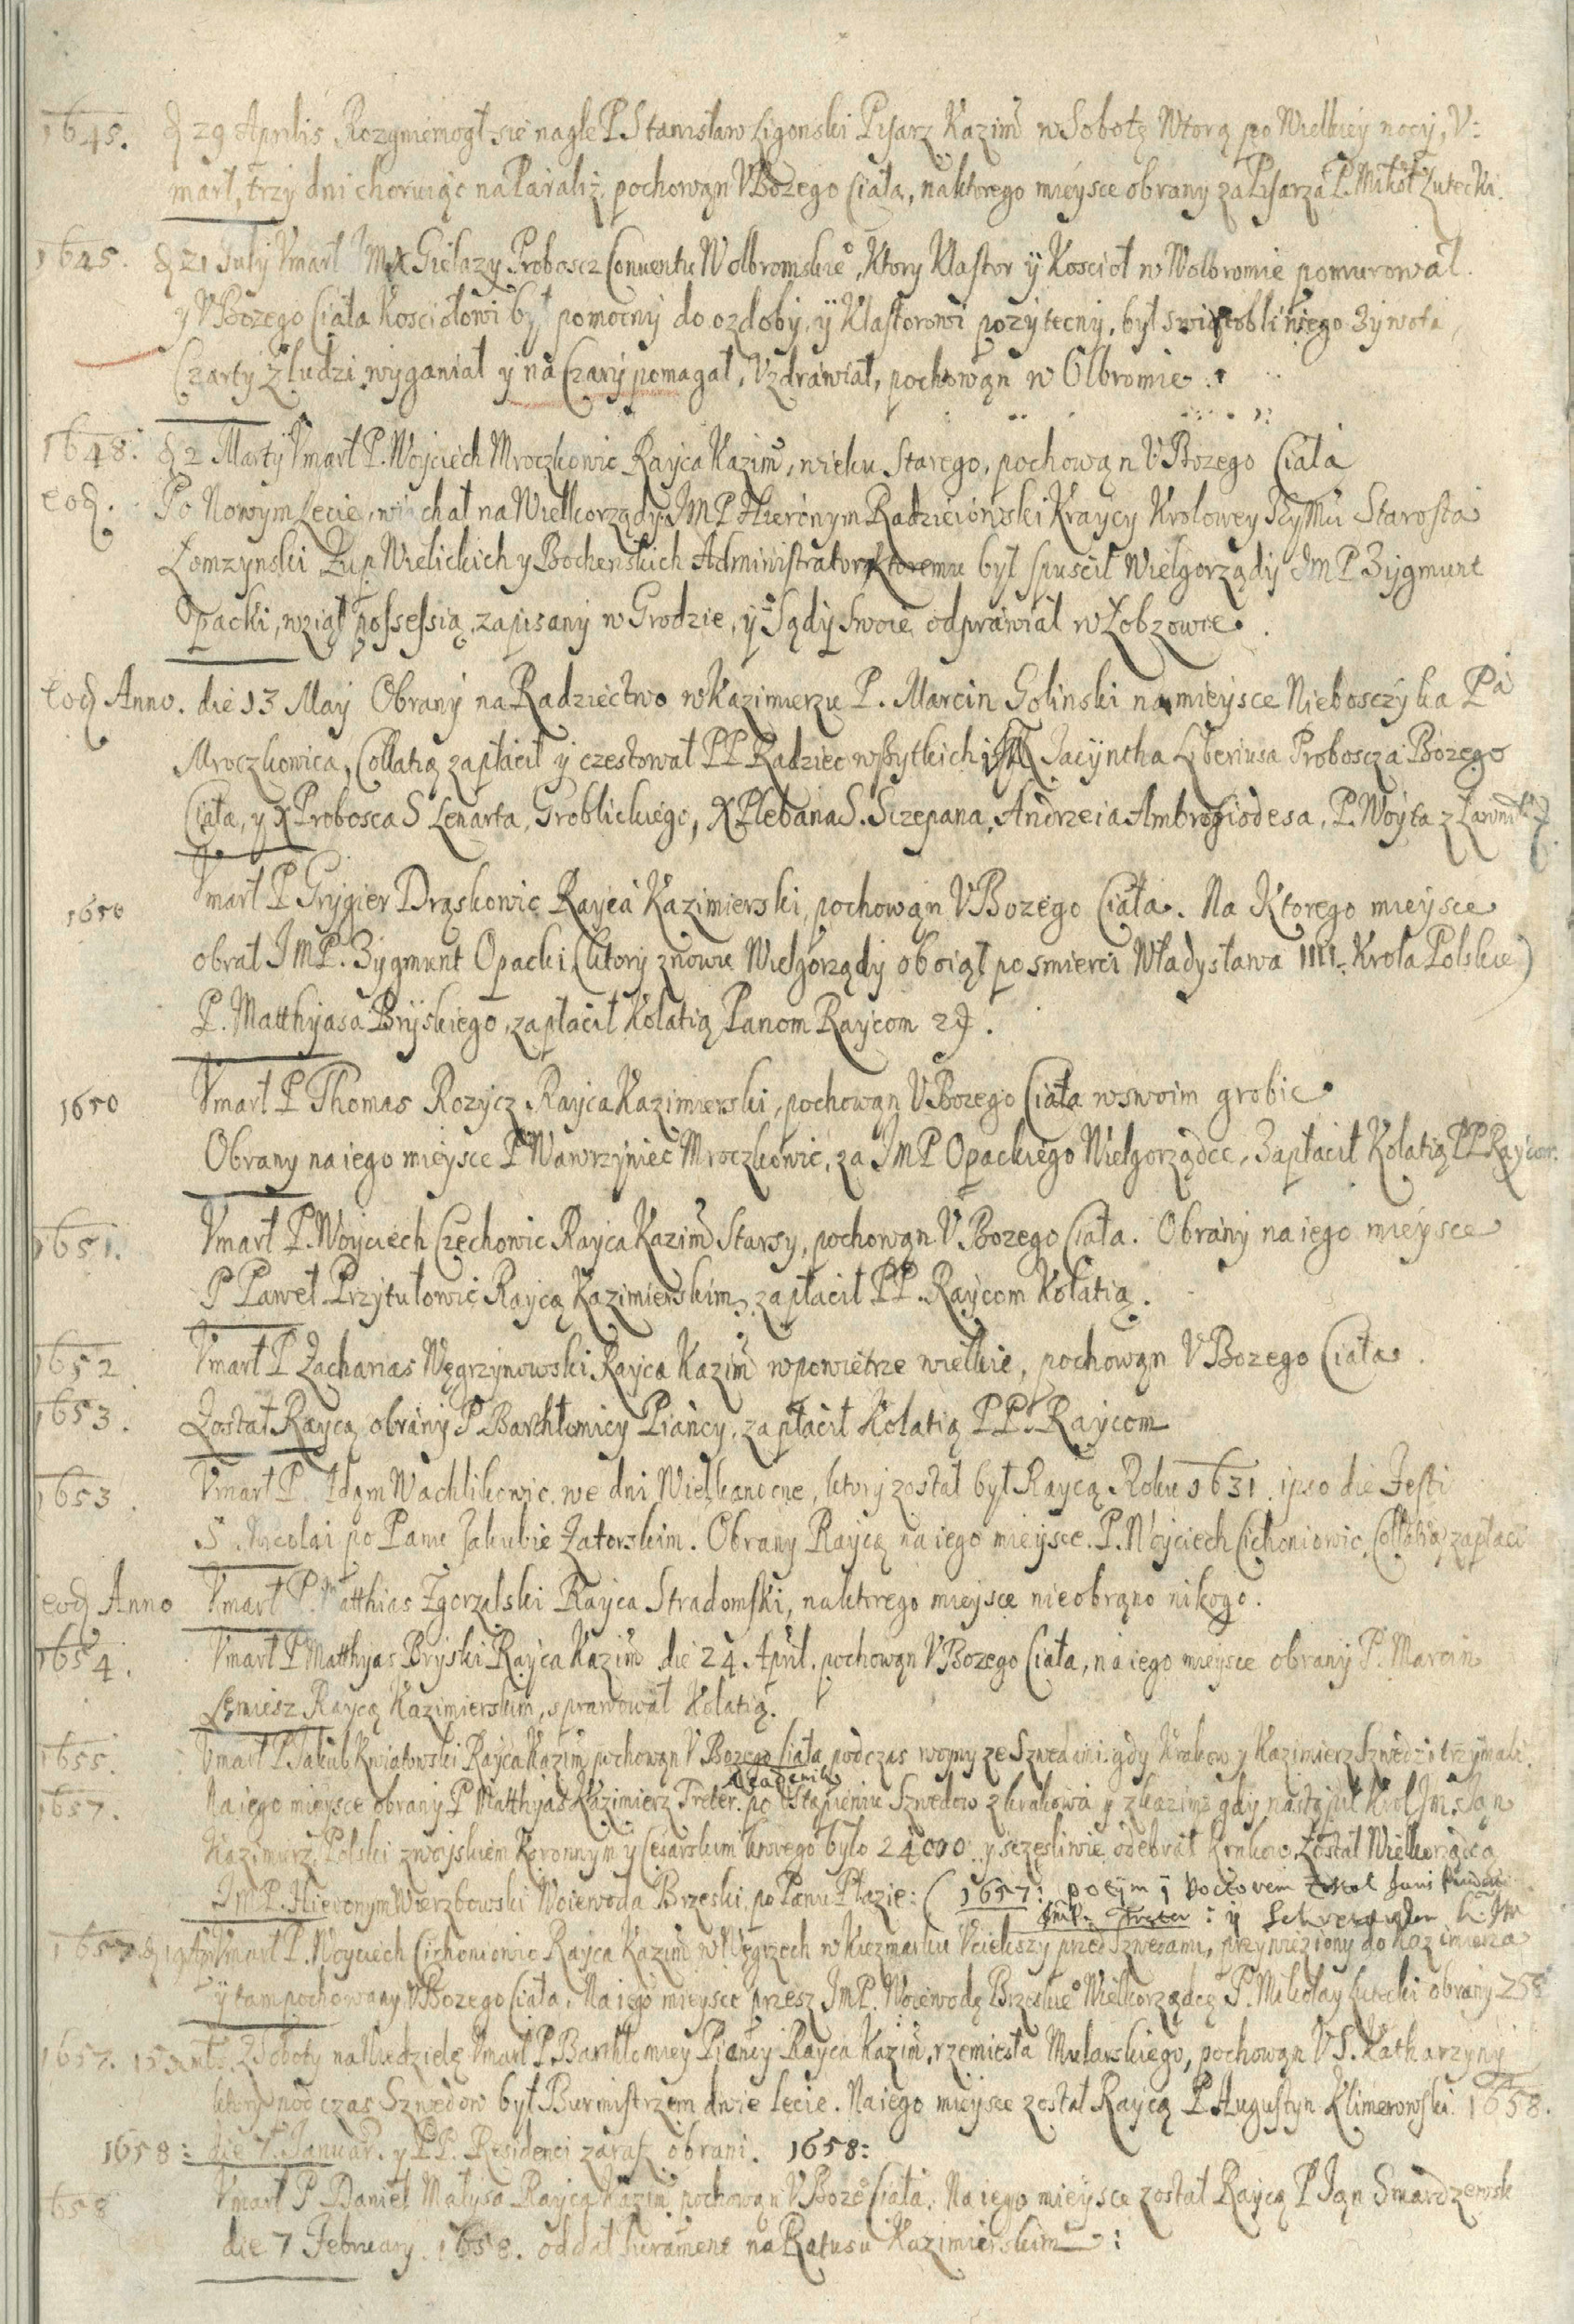 1645. d 29 Aprilis Rozgniemogł się nagle P Stanisław Ligonski Pisarz Kazim w Sobotę Wtorą po Wielkiey nocy, V=
marł, trzy dni choruiąc na Paraliż, pochowąn V Bozego Ciała, na ktorego mieysce obrany za Pisarza P. Mikoł Lutecki.
1645. d 21 July Vmarł IMX Gielazy Proboscz Conuentu Wolbromskie°, Ktory Klastor ÿ Kosciół w Wolbromie pomurował.
y V Bozego Ciała Kosciołowi był pomocny do ozdoby, ÿ Klastorowi pozytecny, był swiątobliwego Zywota,
Czarty z ludzi wyganiał y na Czary pomagał, Vzdrawiał, pochowąn w Olbromie.
1648. d 2 Marty Vmarł P. Woyciech Mroczkowic Rayca Kazim, wieku Starego, pochowąn V Bozego Ciała
eod. Po Nowym Lecie, chał na Wielkorządy IMP Hieronym Radzieiowski Kraycy Krolowey IeyMci Starosta
Łomzynski Zup Wielickich y Bochenskich Administrator, Ktoremu był spuscił Wielgorządy IMP Zygmunt
Opacki, wziął possessią, zapisany w Grodzie, y Sądy swoie odprawiał w Łobzowie.
eod Anno. die 13 May Obrany na Radziectwo w Kazimierzu P. Marcin Golinski na mieysce Nieboszczyka Pa
Mroczkowica, Collatią zapłacił y czestował PP Radziec wszytkich, Jacyntha Liberiusa Proboscza Bozego
Ciała, y X Probosca S Lenarta, Groblickiego, X Plebana S. Sczepana, Andrzeia Ambrosiodesa, P. Woyta z
1650 Vmarł P Grygier Drąskowic Rayca Kazimierski, pochowąn V Bozego Ciała. Na Ktorego mieysce
obrał IMP. Zygmunt Opacki (ktory znowu Wielgorządy oboiął po smierci Władysława IIII. Krola Polskie)
P. Matthyasa Bryskiego, zapłacił Kolatią Panom Raycom
1650 Vmarł P Thomas Rozycz Rayca Kazimierski, pochowąn V Bozego Ciała w swoim grobie.
Obrany na iego mieysce P Wawrzyniec Mroczkowic, za IMP Opackiego Wielgorządce, Zapłacił Kolatią PP Raycom.
1651. Vmarł P. Woyciech Czechowic Rayca Kazim Starsy, pochowąn V Bozego Ciała. Obrany na iego mieysce
P Paweł Przytułowic Raycą Kazimierskim, zapłacił PP. Raycom Kolatią.
1652. Vmarł P Zacharias Węgrzynowski Rayca Kazim w powietrze wielkie, pochowąn V Bozego Ciała.
1653. Został Raycą obrany P Barthłomiey Piańcy, zapłacił Kolatią PP. Raycom
1653. Vmarł P. Adąm Wachlikowic we dni Wielkanocne, ktory został był Raycą Roku 1631. ipso die Festi
S. Nicolai po Panu Jakubie Zatorskim. Obrany Raycą na iego mieysce P. Woyciech Cichoniowic Collatią zapłaci
eod Anno Vmarł P. Matthias Zgorzelski Rayca Stradomski, na ktorego mieysce nie obrąno nikogo.
1654. Vmarł P Matthyas Bryski Rayca Kazim die 24 April. pochowąn V Bozego Ciała, na iego mieysce obrany P. Marcin
Lemiesz Raycą Kazimierskim, sprawował Kolatią.
1655. Vmarł P Jakub Kwiatowski Rayca Kazim pochowąn V Bozego Ciała podczas woyny ze Szwedami. gdy Krakow y Kazimierz Szwedzi trzymali.
Akademik
1657. Na iego mieysce obrany P Matthyas Kazimierz Treter. po Vstąpieniu Szwedow z Krakowa y z Kazimr gdy nastąpił Krol Im. Ian
Kazimierz Polski z woyskiem Koronnym y Cesarskim ktorego było 24000. y sczęsliwie odebrał Krakow. Został Wielkorządcą
IMP. Hieronym Wierzbowski Woiewoda Brzeski, po Panu Płazie: (1657: potym y Doctorem Został
Treter: y
1657. d Vmarł P. Woyciech Cichoniowic Rayca Kazim w Węgrzech w Kiezmarku Vciekszy przed Szwedami, przywieziony do Kazimierza
ÿ tam pochowany V Bozego Ciała. Na iego mieysce przez IMP. Woiewodę Brzeskie° Wielkorządcę P. Mikołay Lutecki obrany
1657. 15 Z Soboty na Niedzielę Vmarł P. Barthłomiey Piańcy Rayca Kazim, rzemiesła Mularskiego, pochowąn V S. Katharzyny
ktory podczas Szwedow był Burmistrzem dwie lecie. Na iego mieysce został Raycą P Augustyn Klimerowski. 1658.
1658: die 7. Januar. y PP. Residenci zaraz obrani. 1658:
1658 Vmarł P Daniel Małysa Rayca Kazim pochowąn V Boze° Ciała. Na iego mieysce został Raycą P Ian Smardzewsk
die 7 February. 1658. oddał Iurament na Ratusu Kazimierskim: